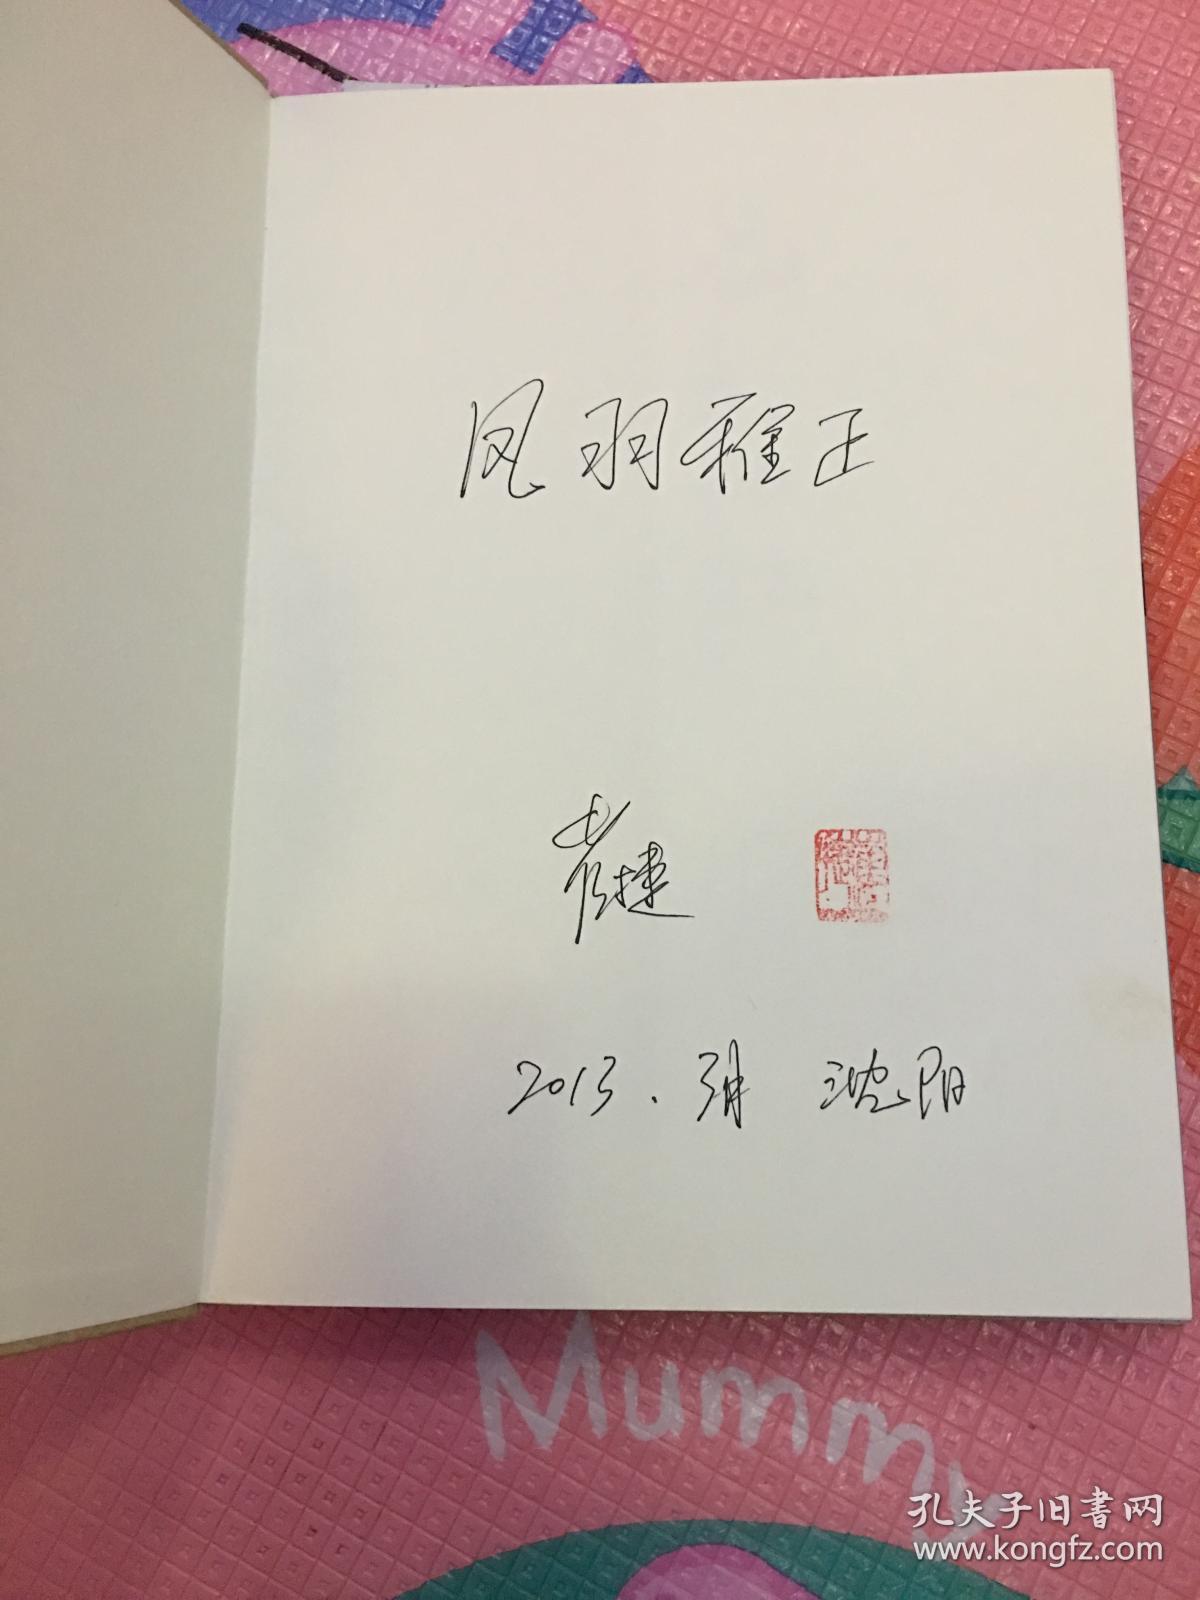 凤羽雅正
2013.3月 沈阳
Mummy
孔夫子旧书网
www.kongfz.com